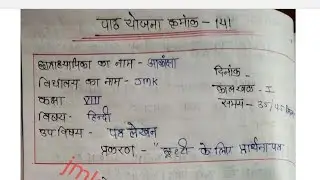 पाठ योजना क्रमांक - 141
छात्राध्यापिका का नाम - आकांक्षा
दिनांक -
विद्यालय का नाम - JMK
कालखंड - I
कक्षा VIII
समय - 35/45
विषय - हिन्दी
उप विषय - पत्र लेखन
प्रकरण - "छुट्टी के लिए प्रार्थना पत्र